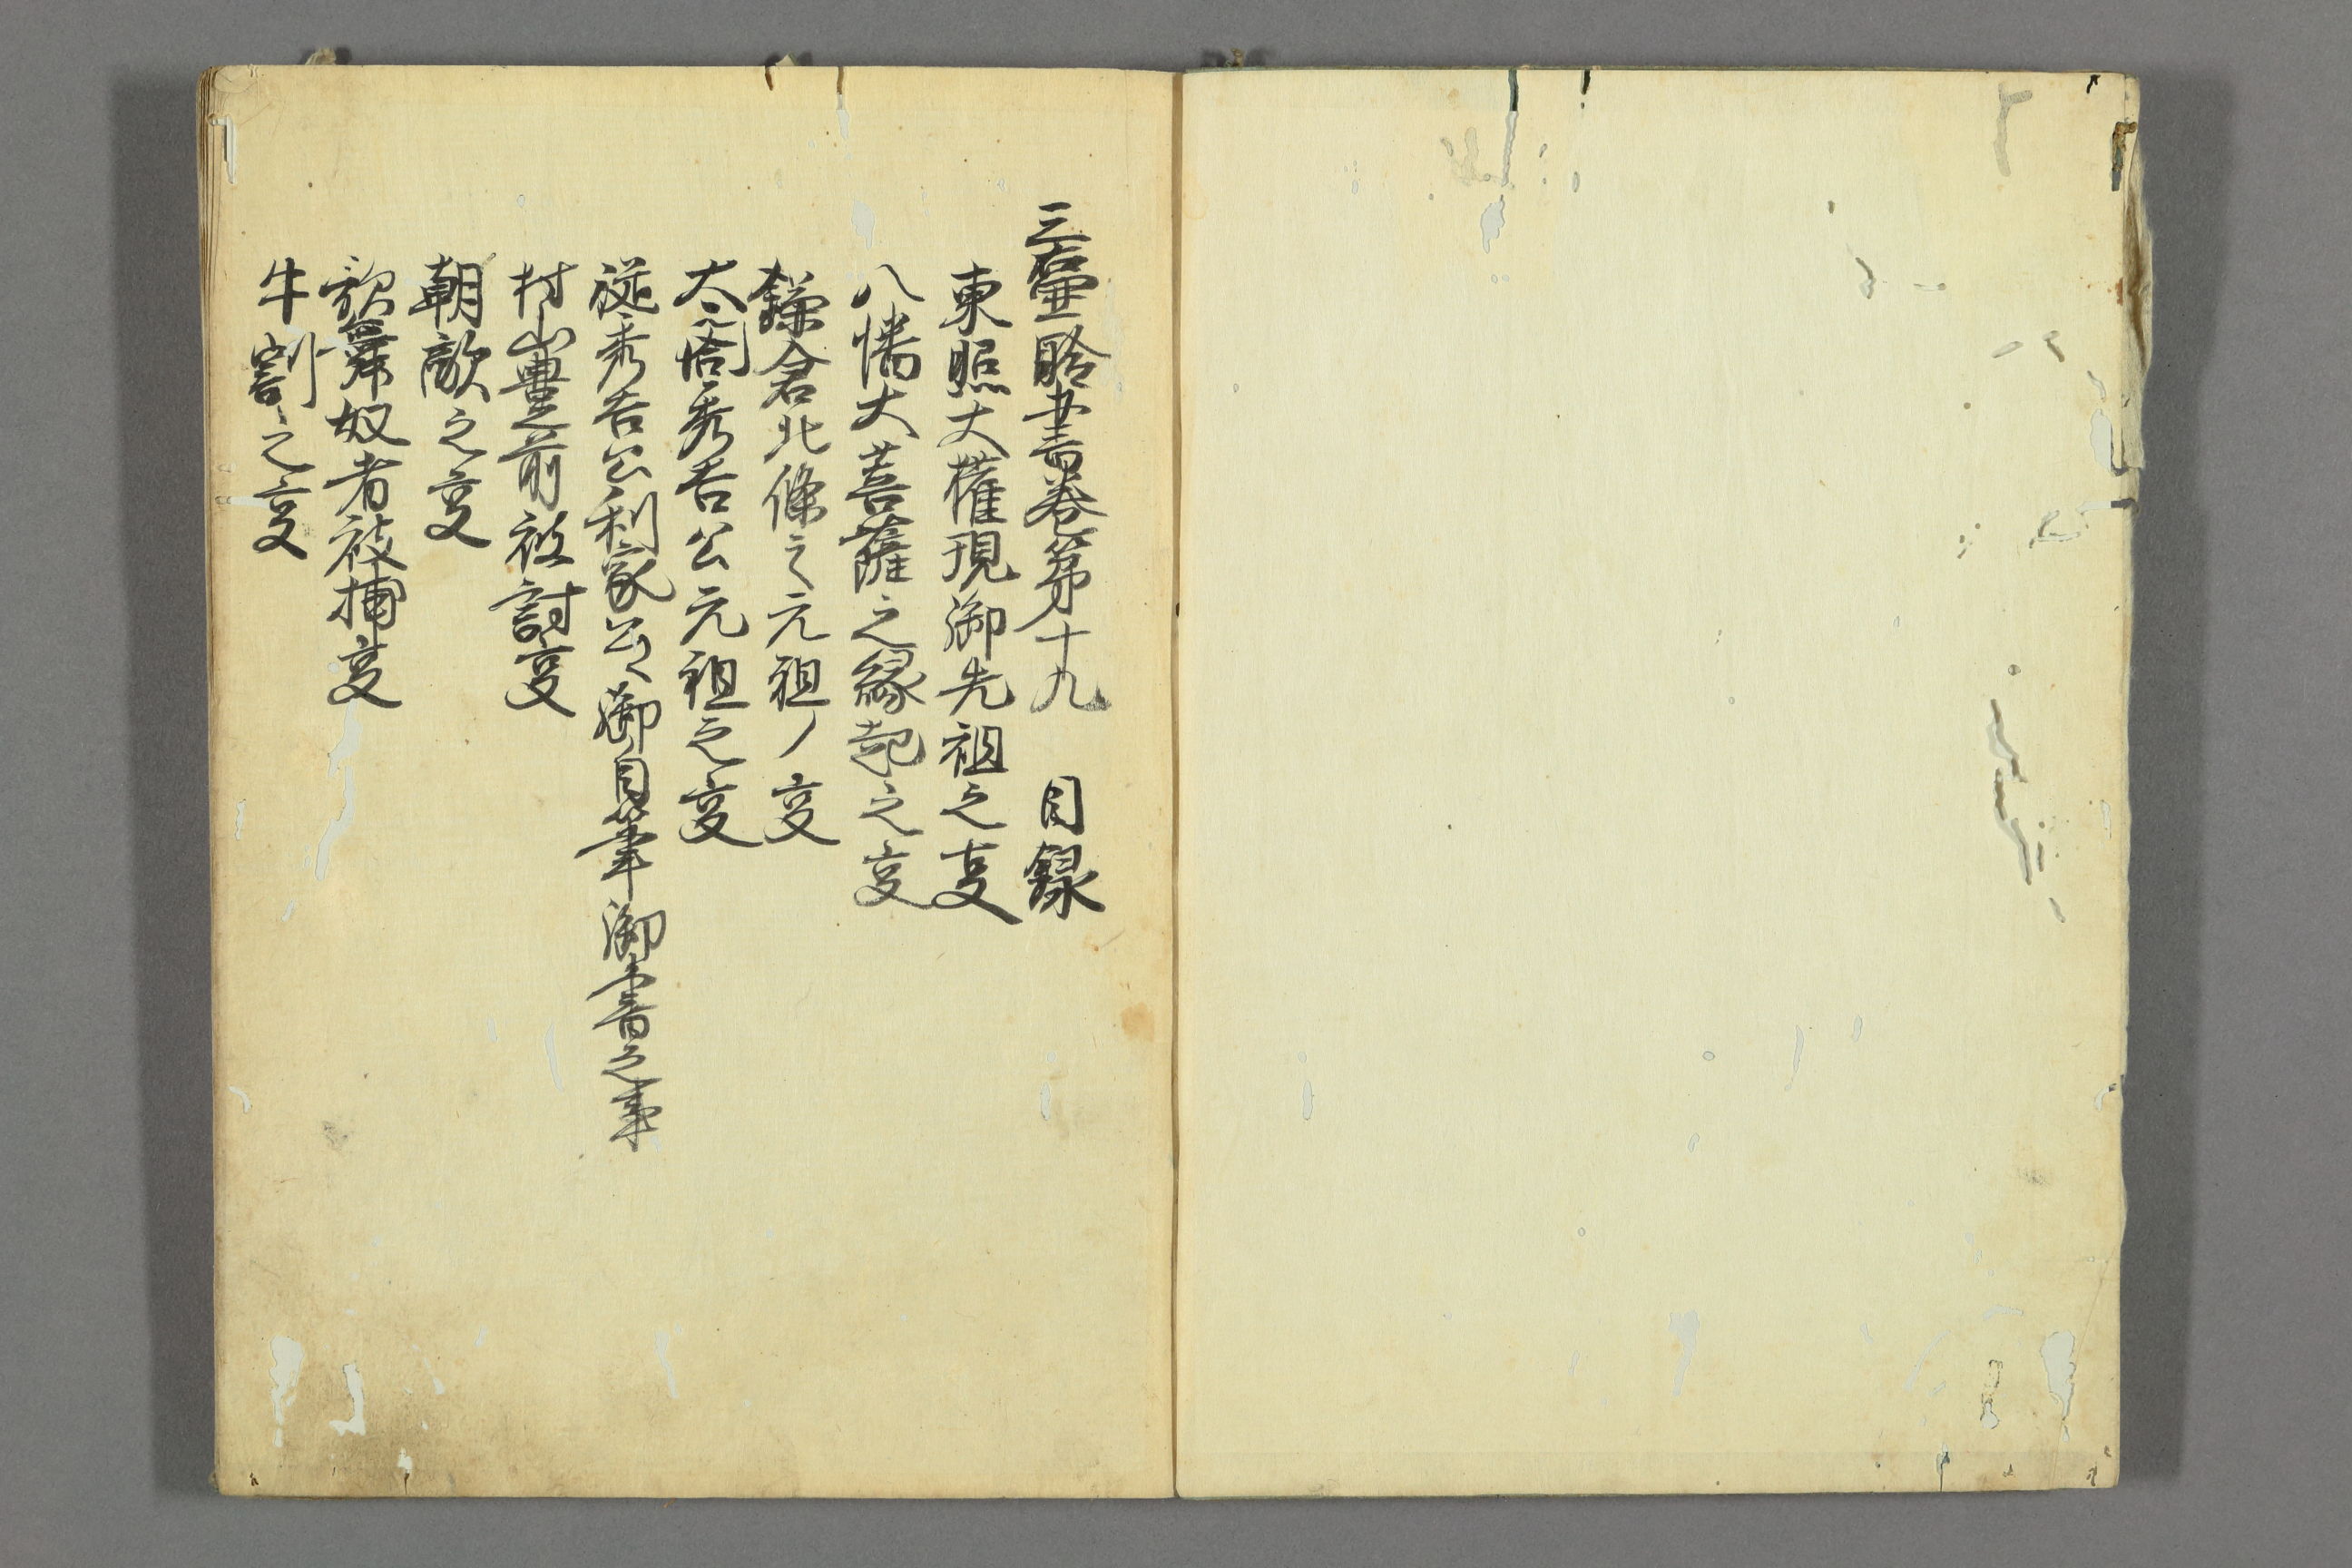 三壷聆書巻第十九　目録
東照大権現御先祖之叓
八幡大菩薩之縁起之叓
鎌倉北條之元祖ノ叓
太閤秀吉公元祖之叓
従秀吉公利家公江御自筆御書之事
村山豊前被討叓
朝敵之叓
歌舞妓者被捕叓
牛割之叓